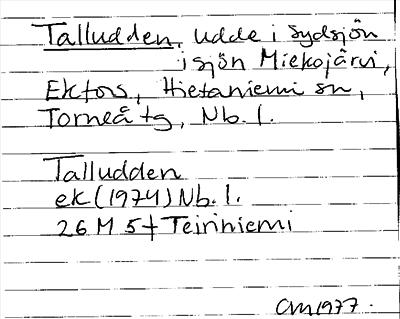 Talludden, udde i Sydsjön
i sjön Miekojärvi,
Ekfors, Hietaniemi sn,
Torneå tg, Nb. l.
Talludden
ek (1974) Nb. l.
26 M 5f Teirinniemi
CM 1977.